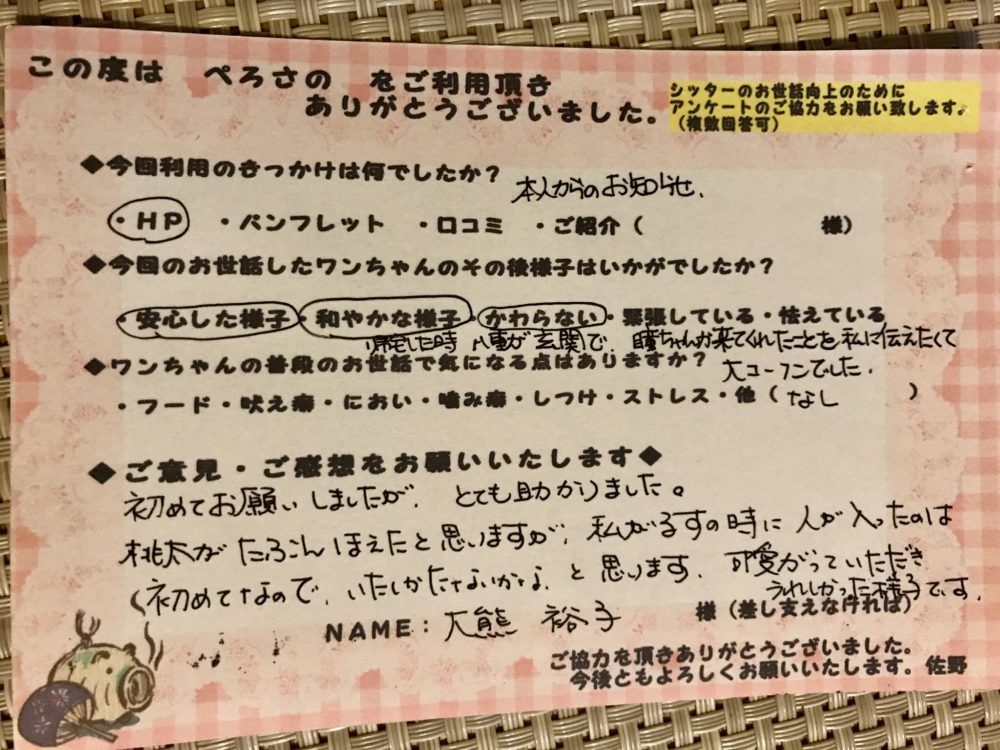 この度は ぺろさの をご利用頂き
ありがとうございました。
シッターのお世話向上のために
アンケートのご協力をお願い致します。
（複数回答可）
◆今回利用のきっかけは何でしたか？
本人からのお知らせ、
・HP ・パンフレット ・口コミ ・ご紹介（ 様）
◆今回のお世話したワンちゃんのその後様子はいかがでしたか？
・安心した様子・和やかな様子・かわらない・緊張している・怯えている
帰宅した時 八重が玄関で、瞳ちゃんが来てくれたことを私に伝えたくて
大コーフンでした。
◆ワンちゃんの普段のお世話で気になる点はありますか？
・フード・吠え癖・におい・噛み癖・しつけ・ストレス・他（なし ）
◆ご意見・ご感想をお願いいたします◆
初めてお願いしましたが、とても助かりました。
桃太がたぶんほえたと思いますが、私がるすの時に人が入ったのは
初めてなので、いたしかたないかな、と思います。可愛がっていただき
うれしかった様子です。
NAME：大熊 裕子 様（差し支えなければ）
ご協力を頂きありがとうございました。
今後ともよろしくお願いいたします。佐野